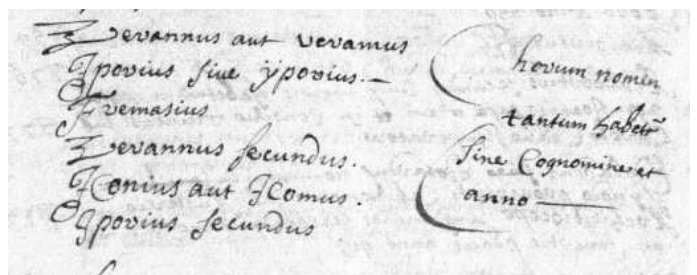 Zerannus aut veramus
Iporius sive yporius.—
Fremasius
Zerannus secundus.
Iconius aut Icomus.
Iporius secundus
horum nomen
tantum habetr
sine Cognomine et
anno —